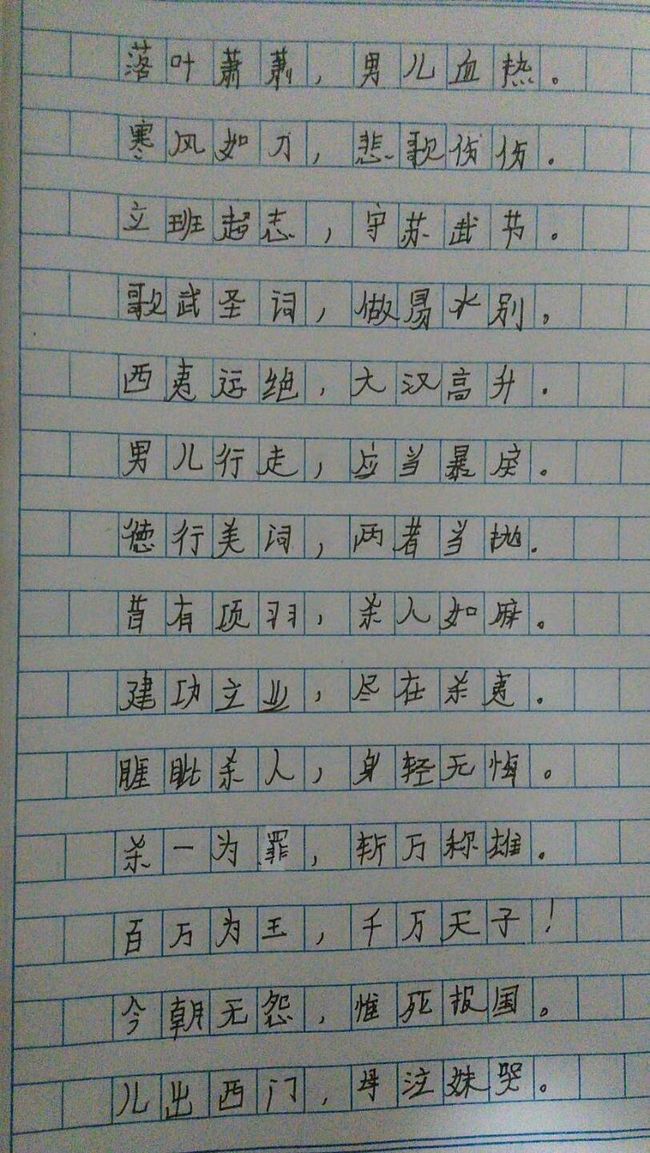 落叶萧萧，男儿血热。
寒风如刀，悲歌伤伤。
立班超志，守苏武节。
歌武圣词，做易水别。
西夷运绝，大汉高升。
男儿行走，应当暴戾。
德行美词，两者当抛。
昔有项羽，杀人如麻。
建功立业，尽在杀夷。
睚眦杀人，身轻无悔。
杀一为罪，斩万称雄。
百万为王，千万天子！
今朝无怨，惟死报国。
儿出西门，母泣妹哭。